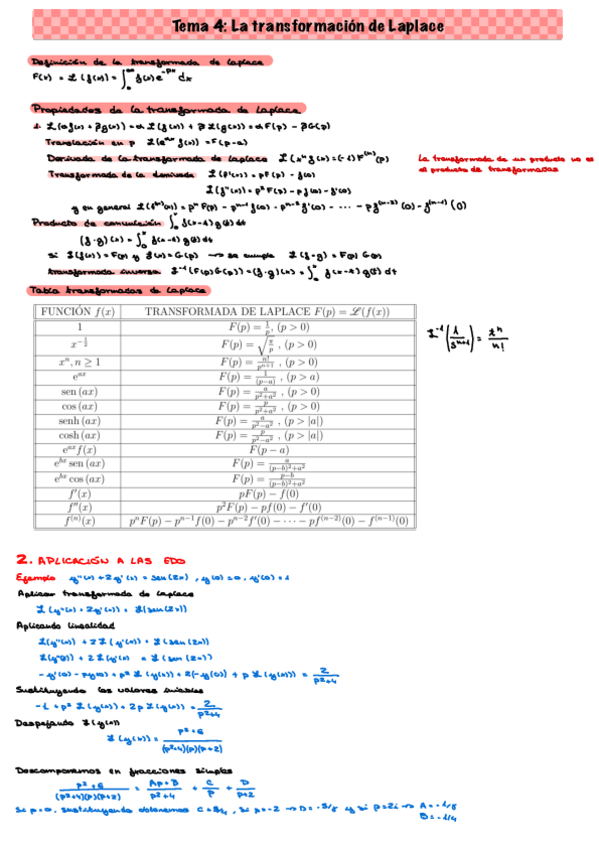 Tema 4: La transformación de Laplace
Definición de la transformada de Laplace
F(x) = ℒ(f(x)) = ∫₀^∞ f(x) e^{-px} dx
Propiedades de la transformada de Laplace
1. ℒ(αf(x) + βg(x)) = αℒ(f(x)) + βℒ(g(x)) = αF(p) - βG(p)
Translación en p ℒ(e^{ax} f(x)) = F(p-a)
Derivada de la transformada de Laplace ℒ(x^n f(x)) = (-1)^n F^{(n)}(p)
La transformada de un producto no es
el producto de transformadas
Transformada de la derivada ℒ(f'(x)) = pF(p) - f(0)
ℒ(f''(x)) = p²F(p) - pf(0) - f'(0)
y en general ℒ(f^{(n)}(x)) = p^n F(p) - p^{n-1} f(0) - p^{n-2} f'(0) - ... - p f^{(n-2)}(0) - f^{(n-1)}(0)
Producto de convolución ∫₀^x f(x-t) g(t) dt
(f·g)(x) = ∫₀^x f(x-t) g(t) dt
si ℒ(f(x)) = F(p) y ℒ(x) = G(p) → se cumple ℒ(f·g) = F(p) G(p)
transformada inversa ℒ^{-1}(F(p)G(p)) = (f·g)(x) = ∫₀^x f(x-t) g(t) dt
Tabla transformadas de Laplace
FUNCIÓN f(x) TRANSFORMADA DE LAPLACE F(p) = ℒ(f(x))
1 F(p) = 1/p, (p > 0)
x^{-1/2} F(p) = √(π/p), (p > 0)
x^n, n ≥ 1 F(p) = n!/p^{n+1}, (p > 0)
e^{ax} F(p) = 1/(p-a), (p > a)
sen (ax) F(p) = a/(p²+a²), (p > 0)
cos (ax) F(p) = p/(p²+a²), (p > 0)
senh (ax) F(p) = a/(p²-a²), (p > |a|)
cosh (ax) F(p) = p/(p²-a²), (p > |a|)
e^{ax} f(x) F(p - a)
e^{bx} sen (ax) F(p) = a/((p-b)²+a²)
e^{bx} cos (ax) F(p) = (p-b)/((p-b)²+a²)
f'(x) pF(p) - f(0)
f''(x) p²F(p) - pf(0) - f'(0)
f^{(n)}(x) p^n F(p) - p^{n-1} f(0) - p^{n-2} f'(0) - ··· - pf^{(n-2)}(0) - f^{(n-1)}(0)
ℒ^{-1}(1/s^{n+1}) = t^n/n!
2. APLICACIÓN A LAS EDO
Ejemplo y''(x) + 2y'(x) = sen(2x), y(0) = 0, y'(0) = 1
Aplicar transformada de Laplace
ℒ(y''(x) + 2y'(x)) = ℒ(sen(2x))
Aplicando linealidad
ℒ(y''(x)) + 2ℒ(y'(x)) = ℒ(sen(2x))
ℒ(y''(x)) + 2ℒ(y'(x)) = ℒ(sen(2x))
-y'(0) - py(0) + p²ℒ(y(x)) + 2(-y(0)) + pℒ(y(x))) = 2/(p²+4)
Sustituyendo los valores iniciales
-1 + p²ℒ(y(x)) + 2pℒ(y(x)) = 2/(p²+4)
Despejando ℒ(y(x))
ℒ(y(x)) = (p²+6)/((p²+4)(p)(p+2))
Descomponemos en fracciones simples
(p²+6)/((p²+4)(p)(p+2)) = (Ap+B)/(p²+4) + C/p + D/(p+2)
Si p=0, sustituyendo obtenemos C = 3/4, si p=-2 → D = -5/8 y si p=2i → A = -1/8
B = -1/4